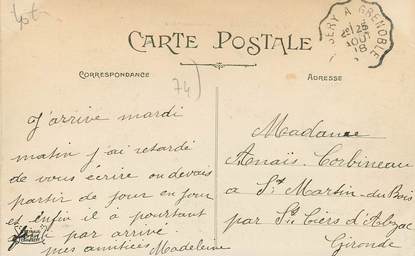 CARTE POSTALE
CORRESPONDANCE
ADRESSE
74)
BÉRY A GRENOBLE
25
AOUT
08
J'arrive mardi
matin j'ai retardé
de vous écrire ou devais
partir de jour en jour
et enfin il a pourtant
par arrivé.
mes amitiées Madeleine
Madame
Anaïs Corbineau
a St Martin-du Bois
par St Ciers d'Abzac
Gironde